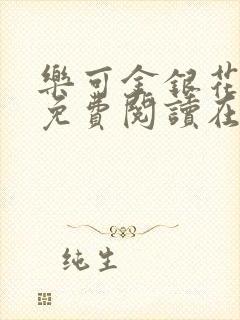 樂可金銀花
免費閱讀在
纯生